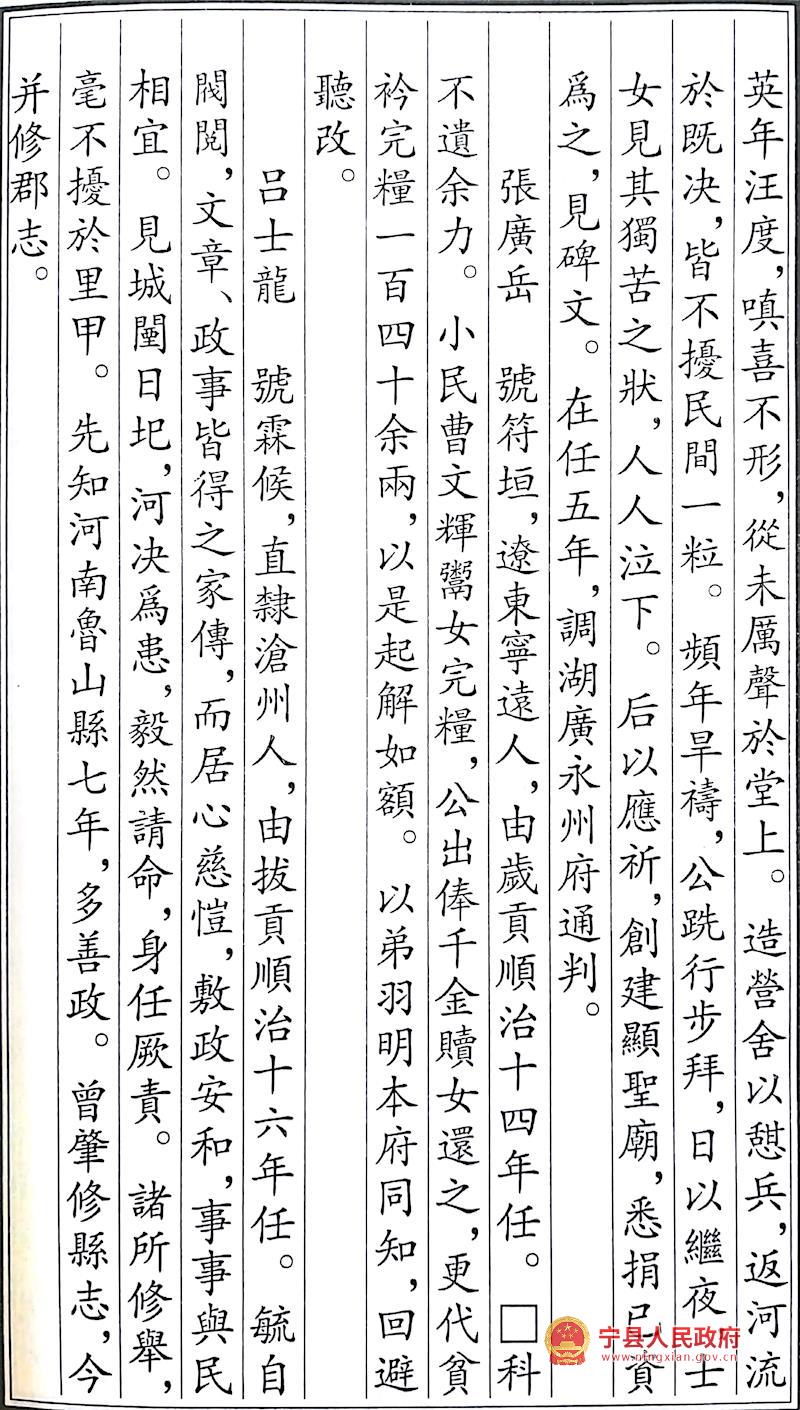 英年汪度，嗔喜不形，從未厲聲於堂上。造營舍以憩兵，返河流
於既决，皆不擾民間一粒。頻年旱禱，公跣行步拜，日以繼夜，士
女見其獨苦之狀，人人泣下。后以應祈，創建顯聖廟，悉捐己資
爲之，見碑文。在任五年，調湖廣永州府通判。
張廣岳　號符垣，遼東寧遠人，由歲貢順治十四年任。□科
不遺余力。小民曹文輝鬻女完糧，公出俸千金贖女還之，更代貧
衿完糧一百四十余兩，以是起解如額。以弟羽明本府同知，回避
聽改。
呂士龍　號霖候，直隸滄州人，由拔貢順治十六年任。毓自
閥閱，文章、政事皆得之家傳，而居心慈愷，敷政安和，事事與民
相宜。見城闉日圮，河决爲患，毅然請命，身任厥責。諸所修舉，
毫不擾於里甲。先知河南魯山縣七年，多善政。曾肇修縣志，今
并修郡志。
宁县人民政府
www.ningxian.gov.cn